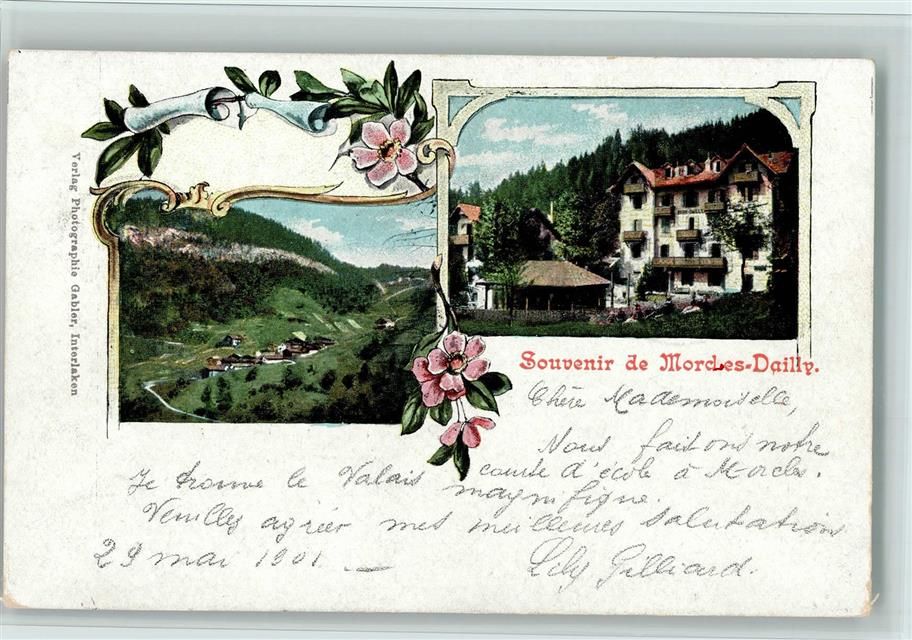 Verlag Photographie Gabler, Interlaken
Souvenir de Morcles-Dailly.
Chère Mademoiselle,
Nous faisons notre
course d'école à Morcles.
Je trouve le Valais
magnifique.
Veuillez agréer mes meilleures salutations
29 mai 1901.
Lily Gilliard.